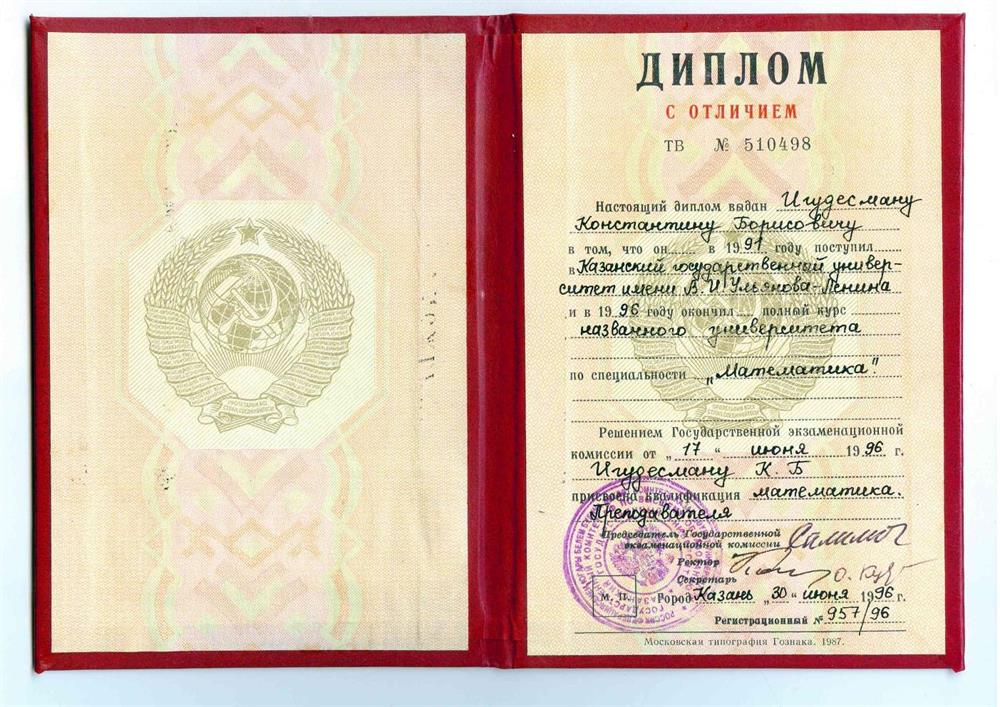 ДИПЛОМ
С ОТЛИЧИЕМ
ТВ № 510498
Настоящий диплом выдан Игудесману
Константину Борисовичу
в том, что он в 1991 году поступил
в Казанский государственный универ-
ситет имени В.И.Ульянова-Ленина
и в 1996 году окончил полный курс
названного университета
по специальности „Математика".
Решением Государственной экзаменационной
комиссии от „17“ июня 1996 г.
Игудесману К. Б
присвоена квалификация математика.
Преподавателя
Председатель Государственной
экзаменационной комиссии
Ректор
Секретарь
М. П. Город Казань „30“ июня 1996 г.
Регистрационный № 957/96
Московская типография Гознака. 1987.
ПРОЛЕТАРИИ ВСЕХ
СТРАН, СОЕДИНЯЙТЕСЬ!